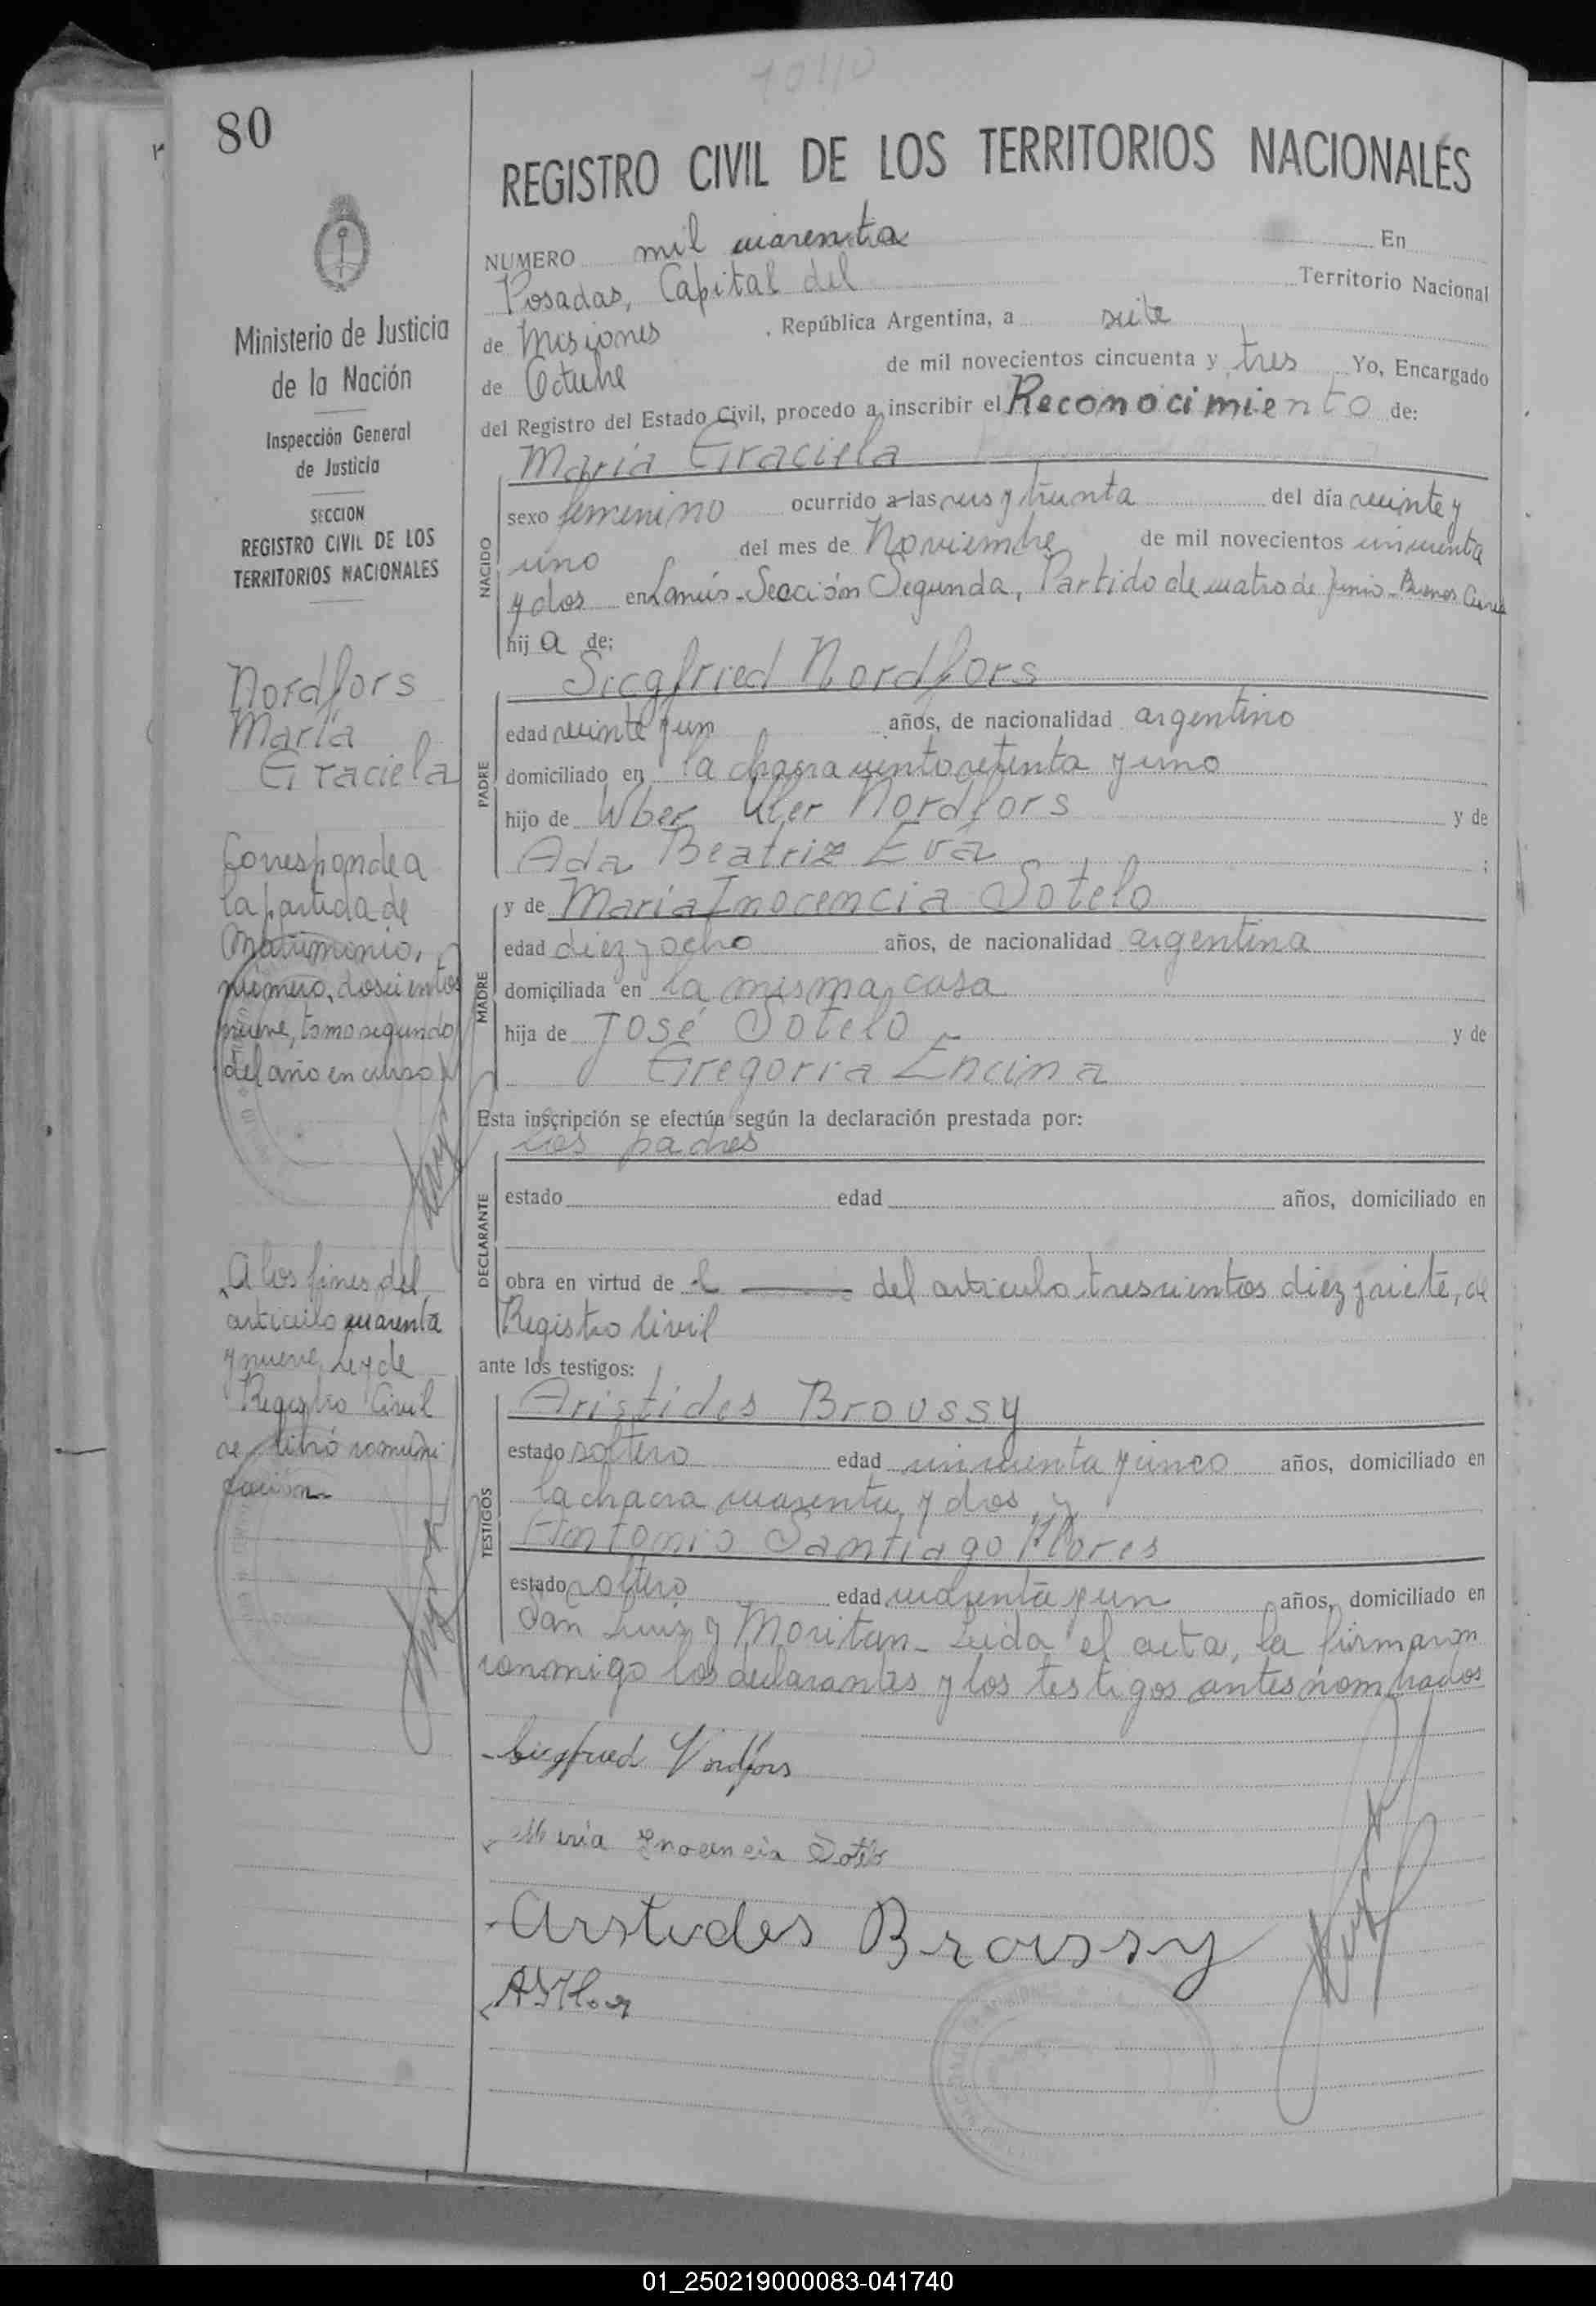 80
REGISTRO CIVIL DE LOS TERRITORIOS NACIONALES
Ministerio de Justicia
de la Nación
Inspección General
de Justicia
SECCION
REGISTRO CIVIL DE LOS
TERRITORIOS NACIONALES
Nordfors
María
Graciela
Corresponde a
la partida de
Matrimonio,
número, doscientos
nueve, tomo segundo
del año en curso
A los fines del
artículo cuarenta
y nueve, Ley de
Registro Civil
se libró comuni
cación
NUMERO mil cuarenta En
Posadas, Capital del Territorio Nacional
de Misiones , República Argentina, a siete
de Octubre de mil novecientos cincuenta y tres Yo, Encargado
del Registro del Estado Civil, procedo a inscribir el Reconocimiento de:
María Graciela
NACIDO
sexo femenino ocurrido a las seis y treinta del día veinte y
uno del mes de Noviembre de mil novecientos cincuenta
y dos en Lanús-Sección Segunda, Partido de cuatro de Junio-Buenos Aires
hij a de:
Siegfried Nordfors
PADRE
edad veinte y un años, de nacionalidad argentino
domiciliado en la chacra ciento setenta y uno
hijo de Wber Uler Nordfors y de
Ada Beatriz Eva ;
y de María Inocencia Sotelo
MADRE
edad diez y ocho años, de nacionalidad argentina
domiciliada en la misma casa
hija de José Sotelo y de
Gregoria Encina
Esta inscripción se efectúa según la declaración prestada por:
Los padres
DECLARANTE
estado edad años, domiciliado en
obra en virtud de l del artículo trescientos diez y siete, de
Registro Civil
ante los testigos:
Aristides Broussy
TESTIGOS
estado soltero edad cincuenta y cinco años, domiciliado en
la chacra cuarenta y dos y
Antonio Santiago Flores
estado soltero edad cuarenta y un años, domiciliado en
San Luis y Moritan- Leida el acta, la firmaron
conmigo los declarantes y los testigos antes nombrados
Siegfried Nordfors
María Inocencia Sotelo
Aristides Broussy
01_250219000083-041740